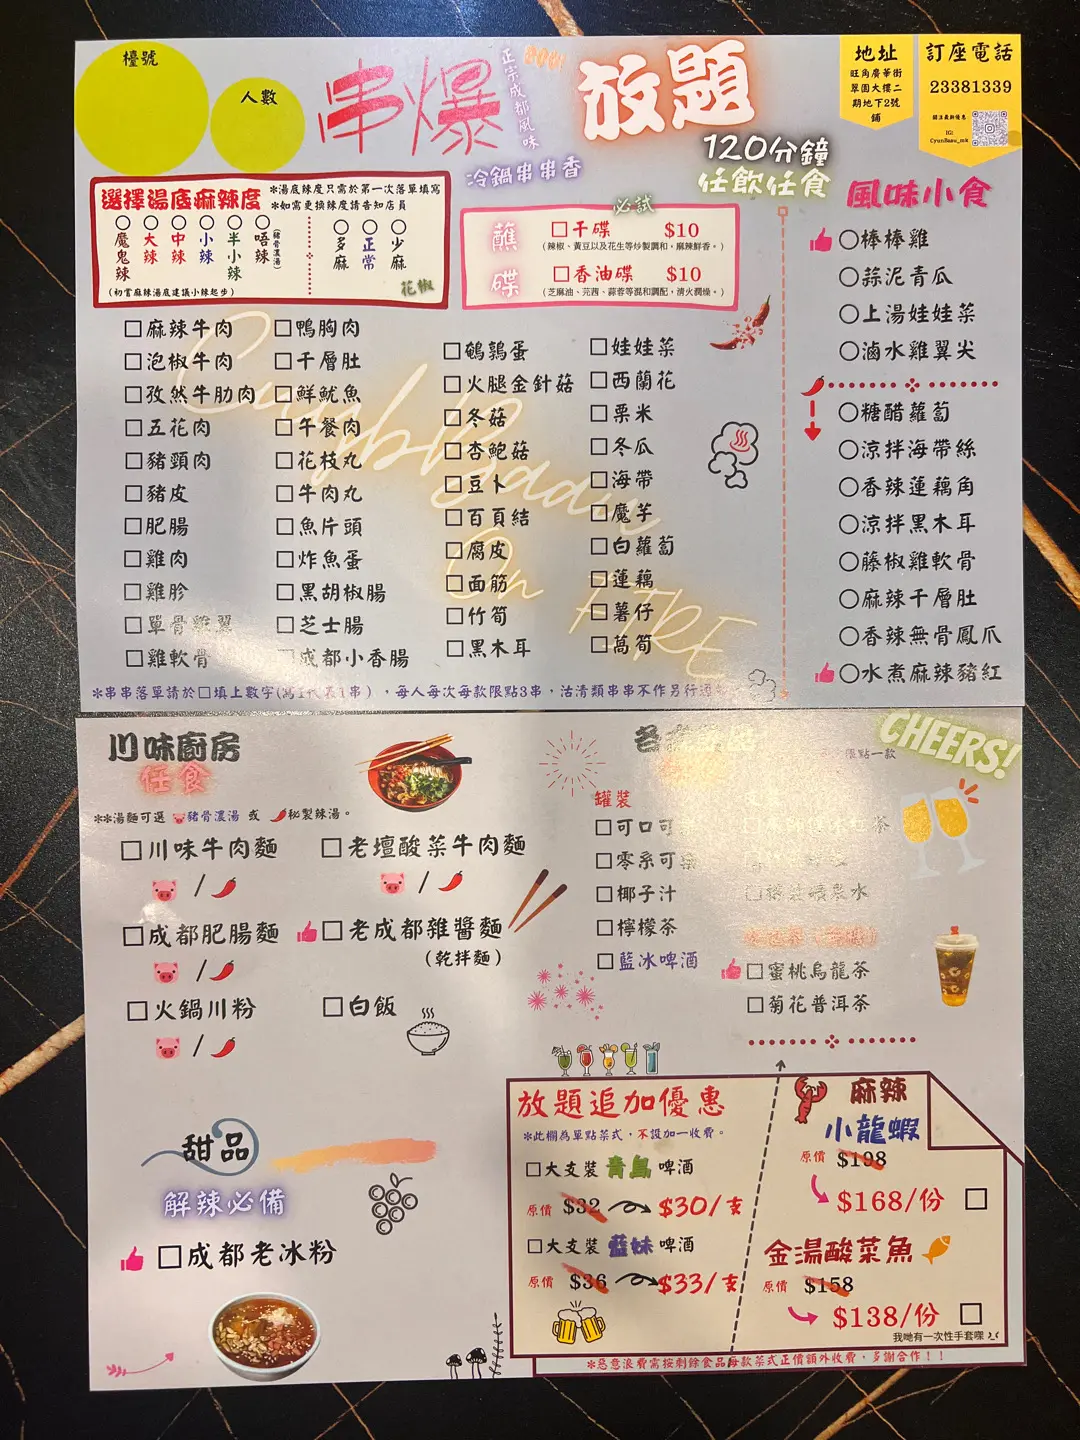 檯號
人數
串爆
正宗成都風味
放題
120分鐘
任飲任食
冷鍋串串香
地址
旺角廣華街
翠園大樓二
期地下2號
舖
訂座電話
23381339
關注最新優惠
IG:
CyunBaau_mk
選擇湯底麻辣度
*湯底辣度只需於第一次落單填寫
*如需更換辣度請告知店員
魔鬼辣
大辣
中辣
小辣
半小辣
唔辣(豬骨濃湯)
多麻
正常
少麻
花椒
(初嘗麻辣湯底建議小辣起步)
必試
蘸碟
干碟 $10
(辣椒、黃豆以及花生等炒製調和,麻辣鮮香。)
香油碟 $10
(芝麻油、芫茜、蒜蓉等混和調配,清火潤燥。)
麻辣牛肉
泡椒牛肉
孜然牛肋肉
五花肉
豬頸肉
豬皮
肥腸
雞肉
雞胗
單骨雞翼
雞軟骨
鴨胸肉
千層肚
鮮魷魚
午餐肉
花枝丸
牛肉丸
魚片頭
炸魚蛋
黑胡椒腸
芝士腸
成都小香腸
鵪鶉蛋
火腿金針菇
冬菇
杏鮑菇
豆卜
百頁結
腐皮
面筋
竹筍
黑木耳
娃娃菜
西蘭花
粟米
冬瓜
海帶
魔芋
白蘿蔔
蓮藕
薯仔
萵筍
CyunBaau
On FIRE
*串串落單請於□填上數字(寫1代表1串),每人每次每款限點3串,沽清類串串不作另行通
風味小食
棒棒雞
蒜泥青瓜
上湯娃娃菜
滷水雞翼尖
糖醋蘿蔔
涼拌海帶絲
香辣蓮藕角
涼拌黑木耳
藤椒雞軟骨
麻辣千層肚
香辣無骨鳳爪
水煮麻辣豬紅
川味廚房
任食
**湯麵可選 豬骨濃湯 或 秘製辣湯。
川味牛肉麵
/
老壇酸菜牛肉麵
/
成都肥腸麵
/
老成都雜醬麵
(乾拌麵)
火鍋川粉
/
白飯
限點一款
CHEERS!
罐裝
可口可
零系可樂
椰子汁
檸檬茶
藍冰啤酒
茶
水
蜜桃烏龍茶
菊花普洱茶
甜品
解辣必備
成都老冰粉
放題追加優惠
*此欄為單點菜式,不設加一收費。
大支裝 青島 啤酒
原價 $32 $30/支
大支裝 藍妹 啤酒
原價 $36 $33/支
麻辣
小龍蝦
原價 $198
$168/份
金湯酸菜魚
原價 $158
$138/份
我哋有一次性手套㗎
*惡意浪費需按剩餘食品每款菜式正價額外收費,多謝合作!!